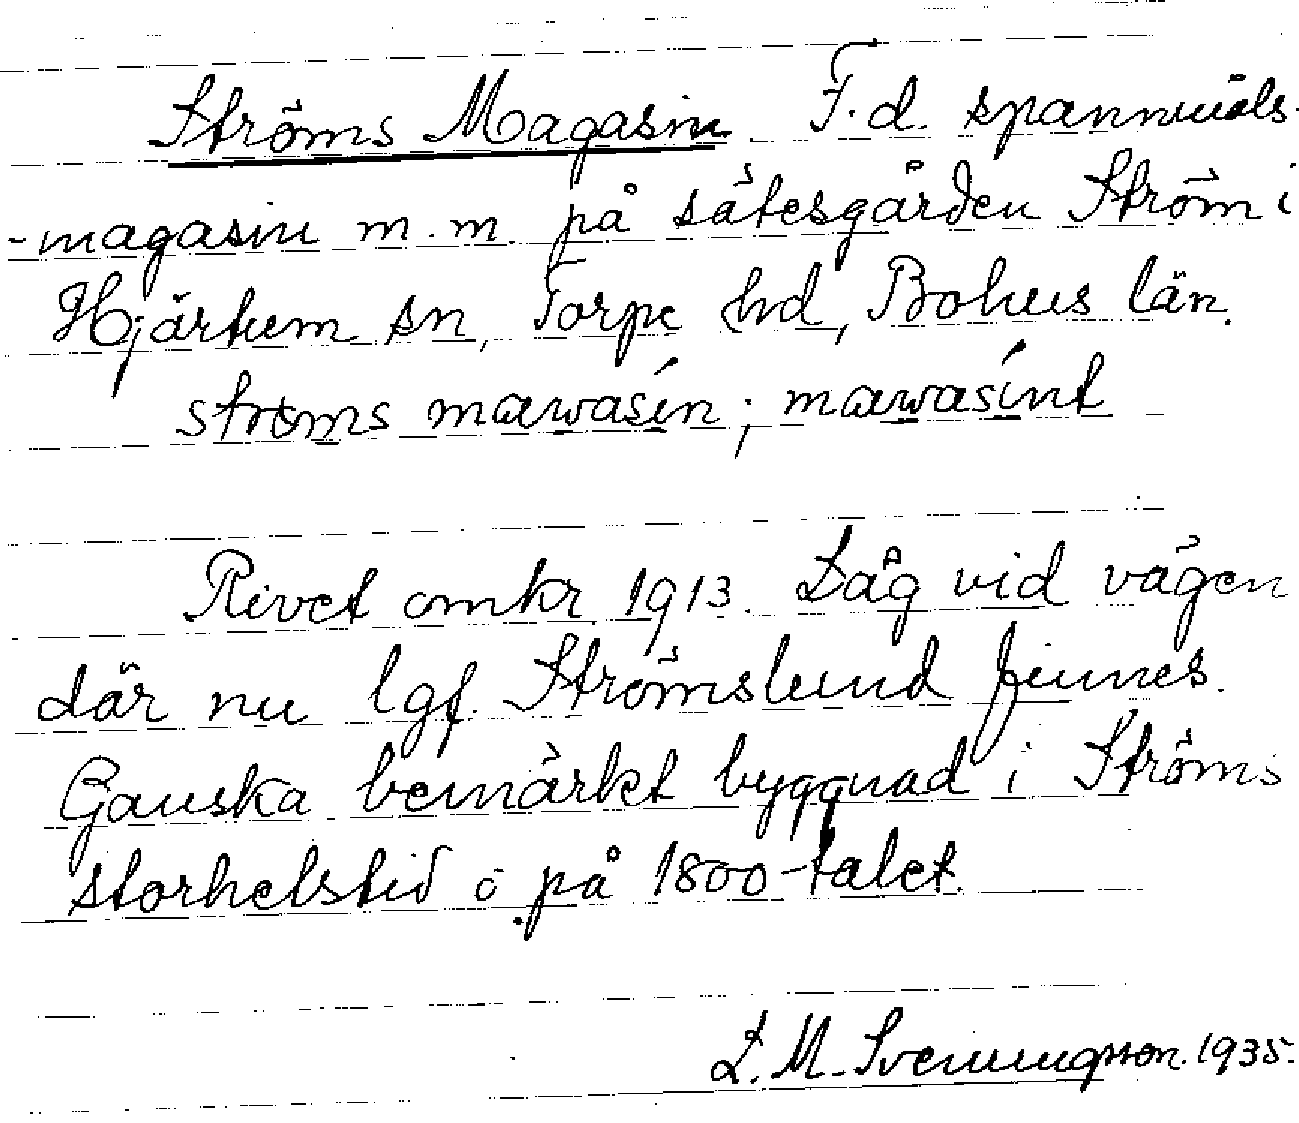 Ströms Magasin. F.d. spannmåls-
-magasin m.m. på sätesgården Ström i
Hjärtum sn, Torpe hd, Bohus län.
ströms mawasín; mawasínt
Rivet omkr 1913. Låg vid vägen
där nu lgf. Strömslund finnes.
Ganska bemärkt byggnad i Ströms
storhetstid på 1800-talet.
L. M. Svenungsson. 1935.